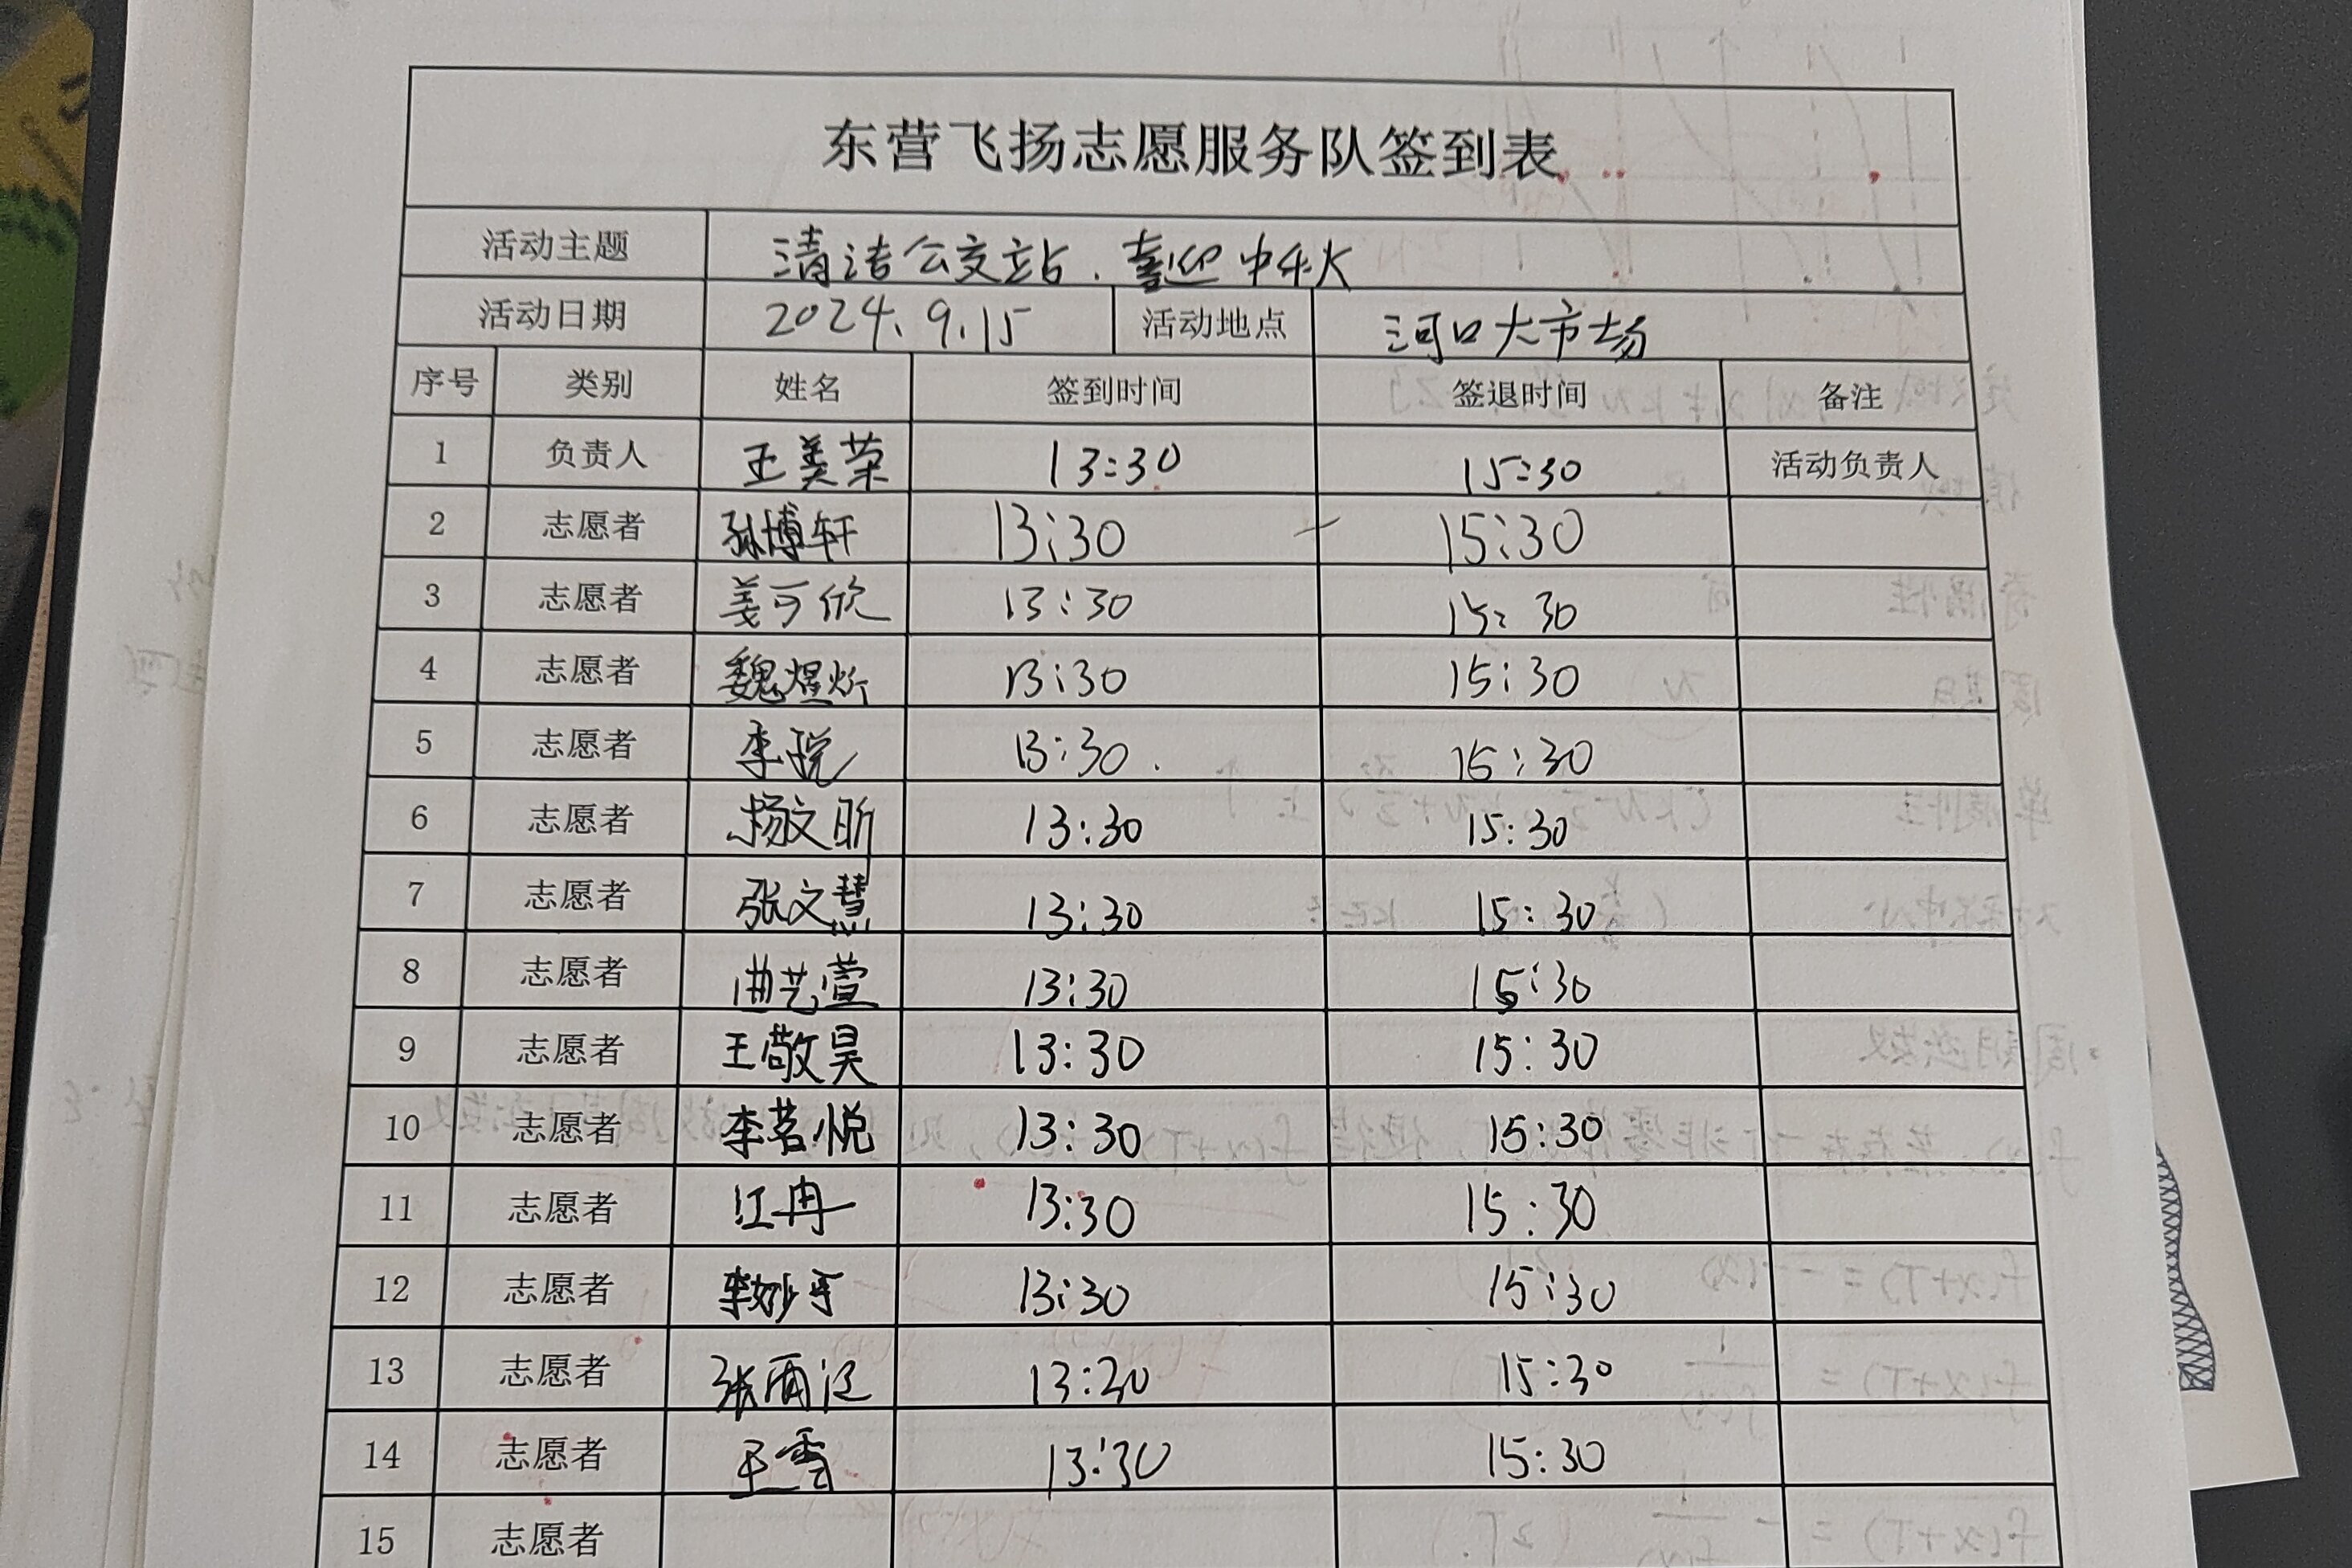 东营飞扬志愿服务队签到表
活动主题 清洁公交站.喜迎中秋
活动日期 2024.9.15 活动地点 河口大市场
序号 类别 姓名 签到时间 签退时间 备注
1 负责人 王美荣 13:30 15:30 活动负责人
2 志愿者 孙博轩 13:30 15:30
3 志愿者 姜可欣 13:30 15:30
4 志愿者 魏煜炘 13:30 15:30
5 志愿者 李悦 13:30 15:30
6 志愿者 杨文昕 13:30 15:30
7 志愿者 张文慧 13:30 15:30
8 志愿者 曲艺萱 13:30 15:30
9 志愿者 王敬昊 13:30 15:30
10 志愿者 李茗悦 13:30 15:30
11 志愿者 江冉 13:30 15:30
12 志愿者 李妙可 13:30 15:30
13 志愿者 13:30 15:30
14 志愿者 王雪 13:30 15:30
15 志愿者